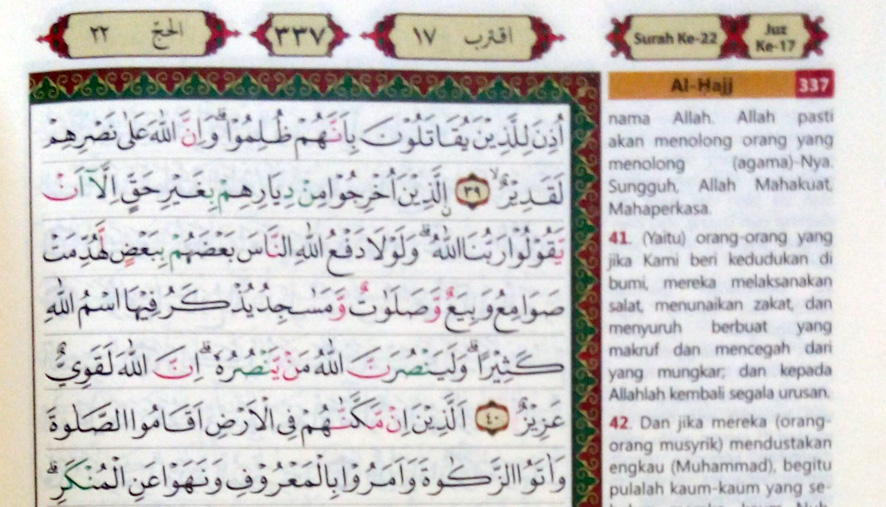 الحجّ ٢٢
٣٣٧
اقترب ١٧
Surah Ke-22
Juz
Ke-17
اُذِنَ لِلَّذِيْنَ يُقَاتَلُوْنَ بِاَنَّهُمْ ظُلِمُوْاۗ وَاِنَّ اللّٰهَ عَلٰى نَصْرِهِمْ
لَقَدِيْرٌۙ ٣٩ ۨالَّذِيْنَ اُخْرِجُوْا مِنْ دِيَارِهِمْ بِغَيْرِ حَقٍّ اِلَّآ اَنْ
يَّقُوْلُوْا رَبُّنَا اللّٰهُۗ وَلَوْلَا دَفْعُ اللّٰهِ النَّاسَ بَعْضَهُمْ بِبَعْضٍ لَّهُدِّمَتْ
صَوَامِعُ وَبِيَعٌ وَّصَلَوٰتٌ وَّمَسٰجِدُ يُذْكَرُ فِيْهَا اسْمُ اللّٰهِ
كَثِيْرًاۗ وَلَيَنْصُرَنَّ اللّٰهُ مَنْ يَّنْصُرُهٗۗ اِنَّ اللّٰهَ لَقَوِيٌّ
عَزِيْزٌ ٤٠ اَلَّذِيْنَ اِنْ مَّكَّنّٰهُمْ فِى الْاَرْضِ اَقَامُوا الصَّلٰوةَ
وَاٰتَوُا الزَّكٰوةَ وَاَمَرُوْا بِالْمَعْرُوْفِ وَنَهَوْا عَنِ الْمُنْكَرِۗ
Al-Hajj 337
nama Allah. Allah pasti
akan menolong orang yang
menolong (agama)-Nya.
Sungguh, Allah Mahakuat,
Mahaperkasa.
41. (Yaitu) orang-orang yang
jika Kami beri kedudukan di
bumi, mereka melaksanakan
salat, menunaikan zakat, dan
menyuruh berbuat yang
makruf dan mencegah dari
yang mungkar; dan kepada
Allahlah kembali segala urusan.
42. Dan jika mereka (orang-
orang musyrik) mendustakan
engkau (Muhammad), begitu
pulalah kaum-kaum yang se-